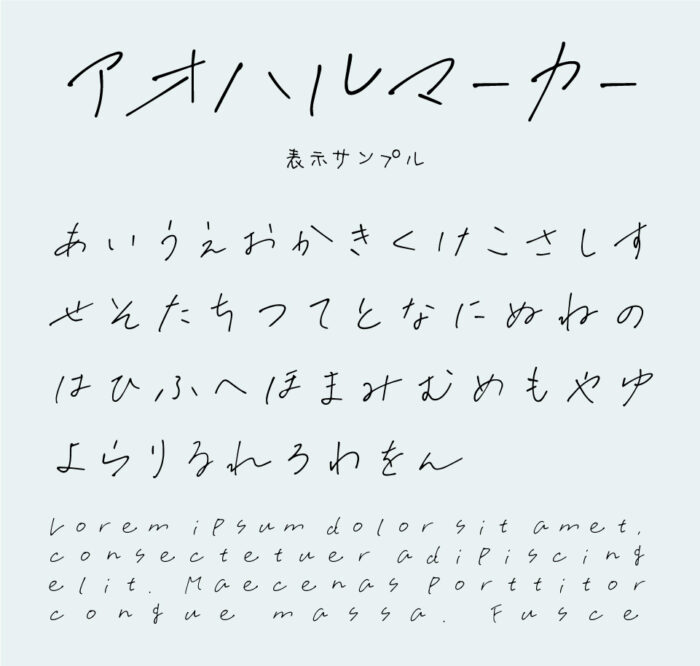 アオハルマーカー
表示サンプル
あいうえおかきくけこさしす
せそたちつてとなにぬねの
はひふへほまみむめもやゆ
よらりるれろわをん
Lorem ipsum dolor sit amet,
consectetuer adipiscing
elit. Maecenas porttitor
congue massa. Fusce